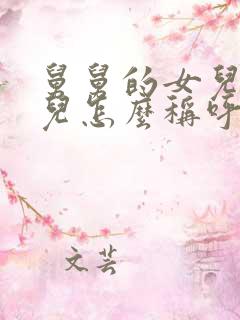 舅舅的女兒
兒怎麼稱呼
文芸